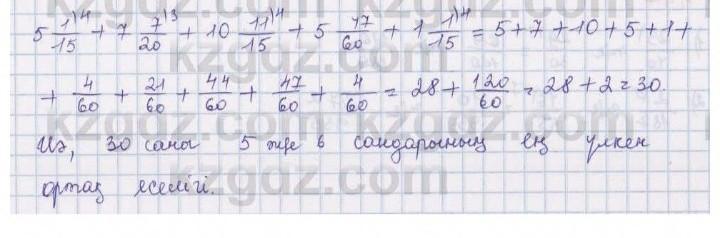 5 1/15 )4 + 7 7/20 )3 + 10 11/15 )4 + 5 47/60 + 1 1/15 )4 = 5+7+10+5+1+
+ 4/60 + 21/60 + 44/60 + 47/60 + 4/60 = 28 + 120/60 = 28+2=30.
Иә, 30 саны 5 және 6 сандарының ең үлкен
ортақ еселігі.
kzgdz.com